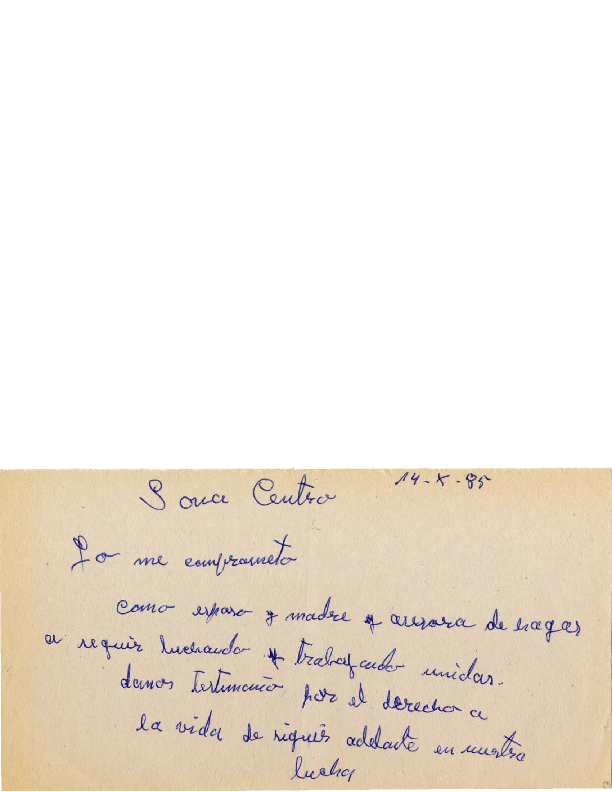 Sona Centro 14-X-85
Yo me comprometo
como esposa y madre y asesora de hagar
a seguir luchando y trabajando unidas.
damos testimonio por el derecho a
la vida de siguir adelante en nuestra
lucha